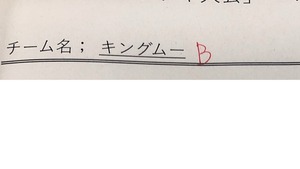 チーム名； キングムー B